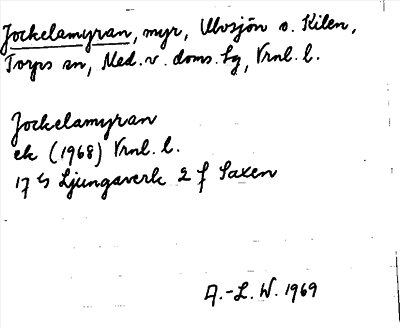 Jockelamyran, myr, Ulvsjön o. Kilen,
Torps sn, Med. v. doms. lg, Vrnl. l.
Jockelamyran
ek (1968) Vrnl. l.
17 G Ljungaverk 2 f Saxen
A.-L. W. 1969